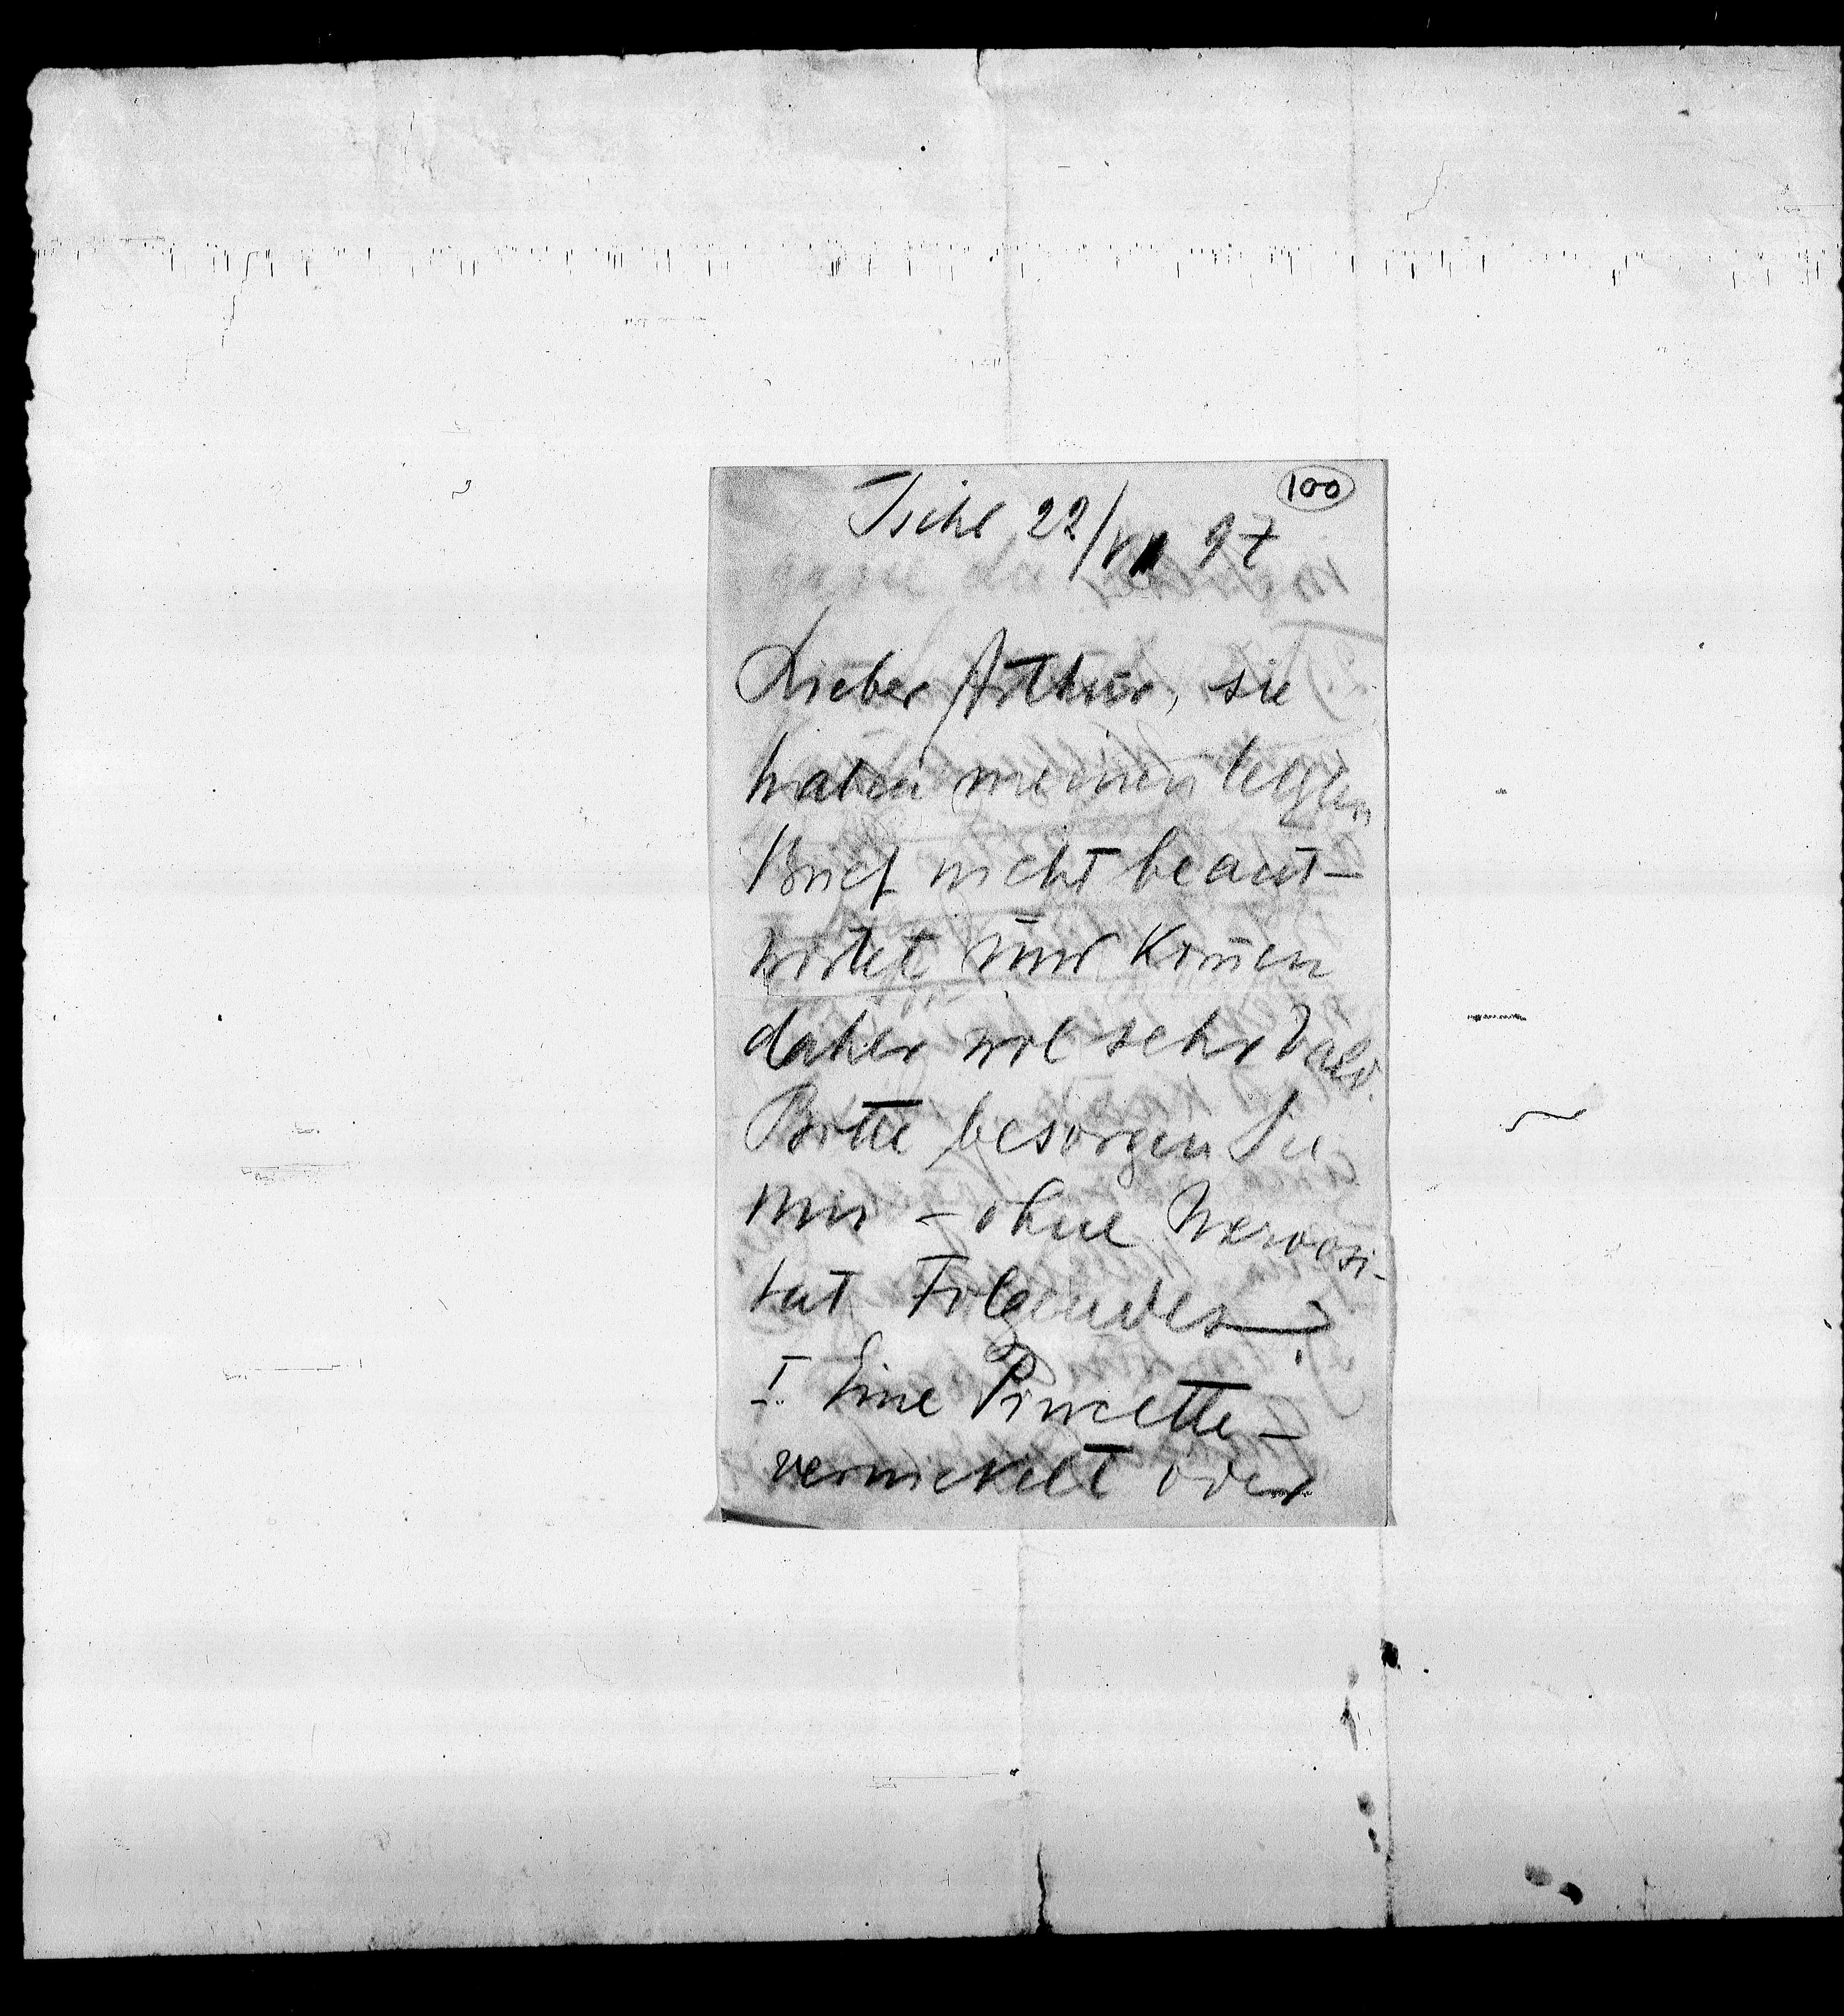 100
Ischl 22/VI 97
Lieber Arthur, sie
haben meinen letzten
Brief nicht beant-
wortet und kom̄en
daher wol sehr bald.
Bitte besorgen Sie
mir – ohne Nervosi-
tät Folgendes:
I. Eine Pincette –
vernickelt oder